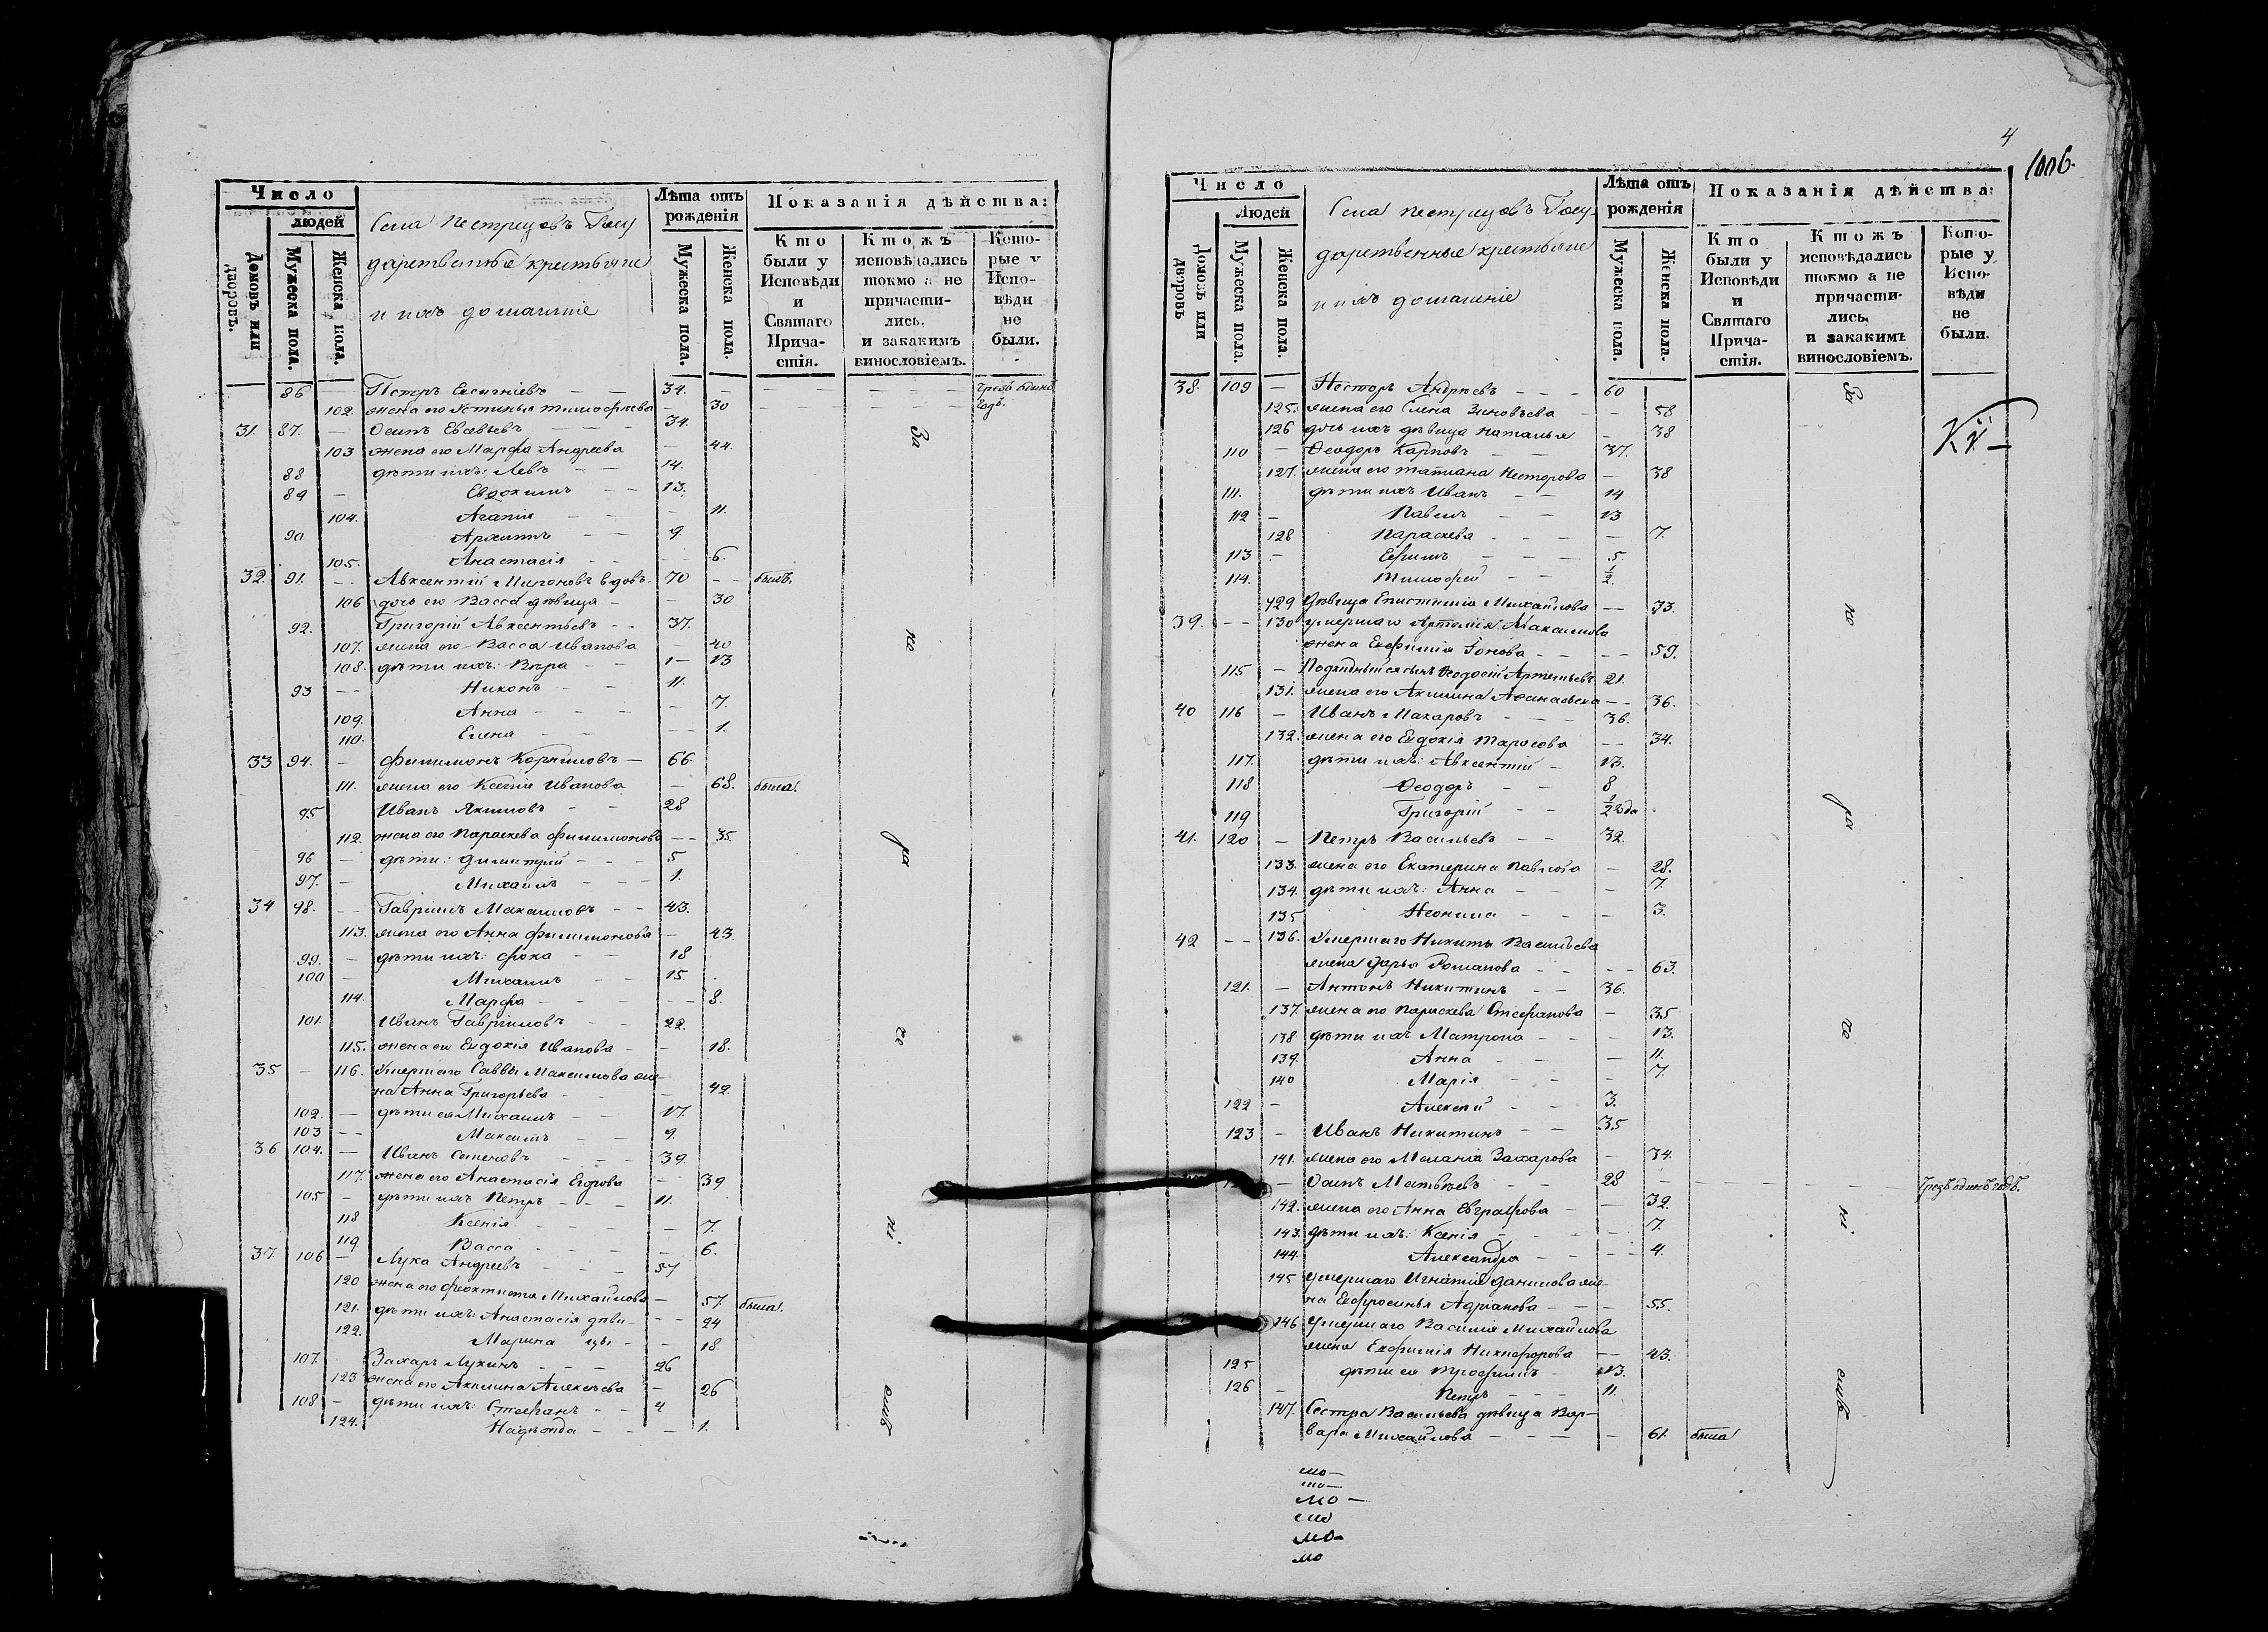 Число
людей
Домовъ или дворовъ.
Мужеска пола.
Женска пола.
Села Пестрецовъ Госу
дарственные крестьяне
и ихъ домашніе
Лѣта отъ рожденія
Мужеска пола.
Женска пола.
Показанія дѣйства:
Кто были у Исповѣди и Святаго Причастія.
Ктожъ исповѣдались токмо а не причастились. и закакимъ винословіемъ.
Которые у Исповѣди не были.
86 — Петръ — — 34. — — — — — чрезъ единъ
102. жена его Устинья Тимофѣева — 30 — — — годъ.
31. 87. — Осипъ Евсевьевъ — — — 34.
103 жена его Марфа Андреева — 44.
88 дѣти ихъ: Левъ — — 14.
89 — Евдокимъ — — 13.
104. Агапія — — — 11.
90 Архипъ — — 9.
105. Анастасія — — — 6.
32. 91. — Авксентій Мироновъ вдовъ. 70 — — былъ.
106 дочь его Васса дѣвица — — 30
92. Григорій Авксентьевъ — — 37.
107. жена его Васса Иванова — 40
108. дѣти ихъ: Вѣра — — — 13
93 — Никонъ — — 11.
109. Анна — — — — 7.
110. Елена — — — — 1.
33 94. — Филимонъ Корниловъ — 66.
111. жена его Ксенія Иванова — 68. была.
95 Иванъ Якимовъ — — 28
112. жена его Параскева Филимонова — — 35.
96 — дѣти: Димитрій — — — 5
97. — Михаилъ — — — 1.
34 98. — Гавріилъ Максимовъ — — 43.
113. жена его Анна Филимонова — 43.
99. — дѣти ихъ: Фока — — 18
100 — Михаилъ — — 15.
114. Марфа — — — — — 8.
101. Иванъ Гавріиловъ — — 22.
115. жена его Евдокія Иванова — — 18.
35 — 116. Умершаго Саввы Максимова же
на Анна Григорьева — — — 42.
102. — дѣти ея Михаилъ — — 17.
103 — Максимъ — — 9.
36 104. — Иванъ Семеновъ — — — 39.
117. жена его Анастасія Егорова — 39
105 — дѣти ихъ Петръ — — 11.
118 Ксенія — — — — 7.
119. Васса — — — — 6.
37. 106 — Лука Андреевъ — — — 57
120 жена его Феоктиста Михайлова — 57. была.
121. дѣти ихъ: Анастасія дѣви — — — 24
122. Марина цы — — 18
107. Захаръ Лукинъ — — — 26
123 жена его Акилина Алексеева — 26
108 — дѣти ихъ: Стефанъ — — 4
124. Надежда — — — 1.
За
ко
ра
че
ні
емъ
4
1006.
Число
Людей
Домовъ или дворовъ
Мужеска пола.
Женска пола.
Села Пестрецовъ Госу-
дарственные крестьяне
и ихъ домашніе
Лѣта отъ рожденія
Мужеска пола.
Женска пола.
Показанія дѣйства:
Кто были у Исповѣди и Святаго Причастія.
Ктожъ исповѣдались токмо а не причастились, и закакимъ винословіемъ.
Которые у Исповѣди не были.
38. 109 — Несторъ Андреевъ — — — 60
125. жена его Елена Зиновьева — — 58
126 дочь ихъ дѣвица Наталья — 38
110 — Феодоръ Карповъ — — 37.
127. жена его Татиана Несторова — 38
111. дѣти ихъ Иванъ — — 14
112 — Павелъ — — 13
128 Параскева — — — — 7.
113 — Ефимъ — — — 5
114. Тимофей — — ½.
129 Дѣвица Епистимія Михайлова — 73.
39. — — 130 умершаго Артемія Максимова
жена Евфимія Гонова — — — — 59.
115 — Подкидышъ ея сынъ Феодосій Артемьевъ 21.
131. жена его Акилина Афанасьева — — 36.
40 116 — Иванъ Макаровъ — — — 36.
132. жена его Евдокія Тарасова — — 34.
117. дѣти ихъ: Авксентій — 13.
118 Феодоръ — — 8
119 Григорій — — ½ года
41. 120 — Петръ Васильевъ — — 32.
133. жена его Екатерина Павлова — 28.
134. дѣти ихъ: Анна — — — 7.
135 Неонила — — — 3.
42 — — 136. Умершаго Никиты Васильева
жена Дарья Романова — — — — 63.
121. — Антонъ Никитинъ — — 36.
137. жена его Параскева Стефанова — 35
138 дѣти ихъ Матрона — — — 13.
139. Анна — — — 11.
140 Марія — — — 7.
122 — Алексѣй — — 3.
123 — Иванъ Никитинъ — — 35
141. жена его Меланія Захарова — 34.
— Осипъ Матвѣевъ — — 28 — — — — — Чрезъ единъ годъ.
142. жена его Анна Евграфова — — 32.
143. дѣти ихъ: Ксенія — — — — 7.
144. Александра — — — — 4.
145 умершаго Игнатія Данилова же-
на Евфросинья Адріанова — — — 55.
146 Умершаго Василія Михайлова
жена Евфимія Никифорова — — 43.
125 дѣти ея Трофимъ — 13.
126 — Петръ — — — 11.
147. Сестра Васильева дѣвица Вар-
вара Михайлова — — — — 61. была
За
ко
ра
че
ні
емъ
мо—
мо—
мо—
мо
мо—
мо